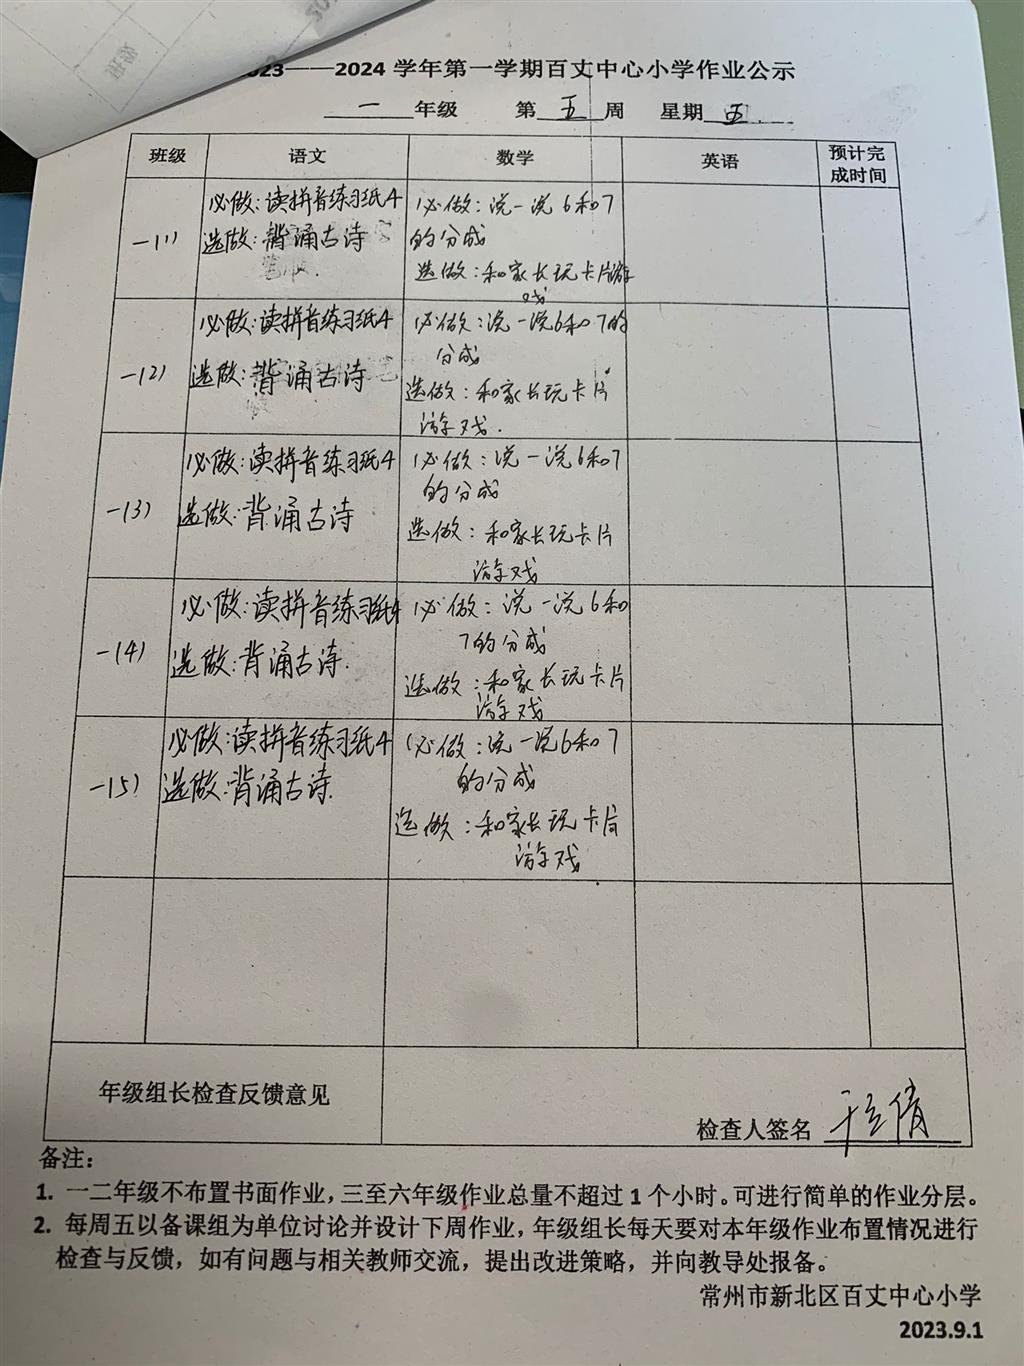 023——2024 学年第一学期百丈中心小学作业公示
一 年级 第 五 周 星期 五
班级 语文 数学 英语 预计完
成时间
一(1)
必做:读拼音练习纸4
选做:背诵古诗
必做:说一说6和7
的分成
选做:和家长玩卡片游
戏
一(2)
必做:读拼音练习纸4
选做:背诵古诗
必做:说一说6和7的
分成
选做:和家长玩卡片
游戏.
一(3)
必做:读拼音练习纸4
选做:背诵古诗
必做:说一说6和7
的分成
选做:和家长玩卡片
游戏
一(4)
必做:读拼音练习纸4
选做:背诵古诗.
必做:说一说6和
7的分成
选做:和家长玩卡片
游戏
一(5)
必做:读拼音练习纸4
选做:背诵古诗.
必做:说一说6和7
的分成
选做:和家长玩卡片
游戏
年级组长检查反馈意见
检查人签名
备注:
1. 一二年级不布置书面作业,三至六年级作业总量不超过 1 个小时。可进行简单的作业分层。
2. 每周五以备课组为单位讨论并设计下周作业,年级组长每天要对本年级作业布置情况进行
检查与反馈,如有问题与相关教师交流,提出改进策略,并向教导处报备。
常州市新北区百丈中心小学
2023.9.1